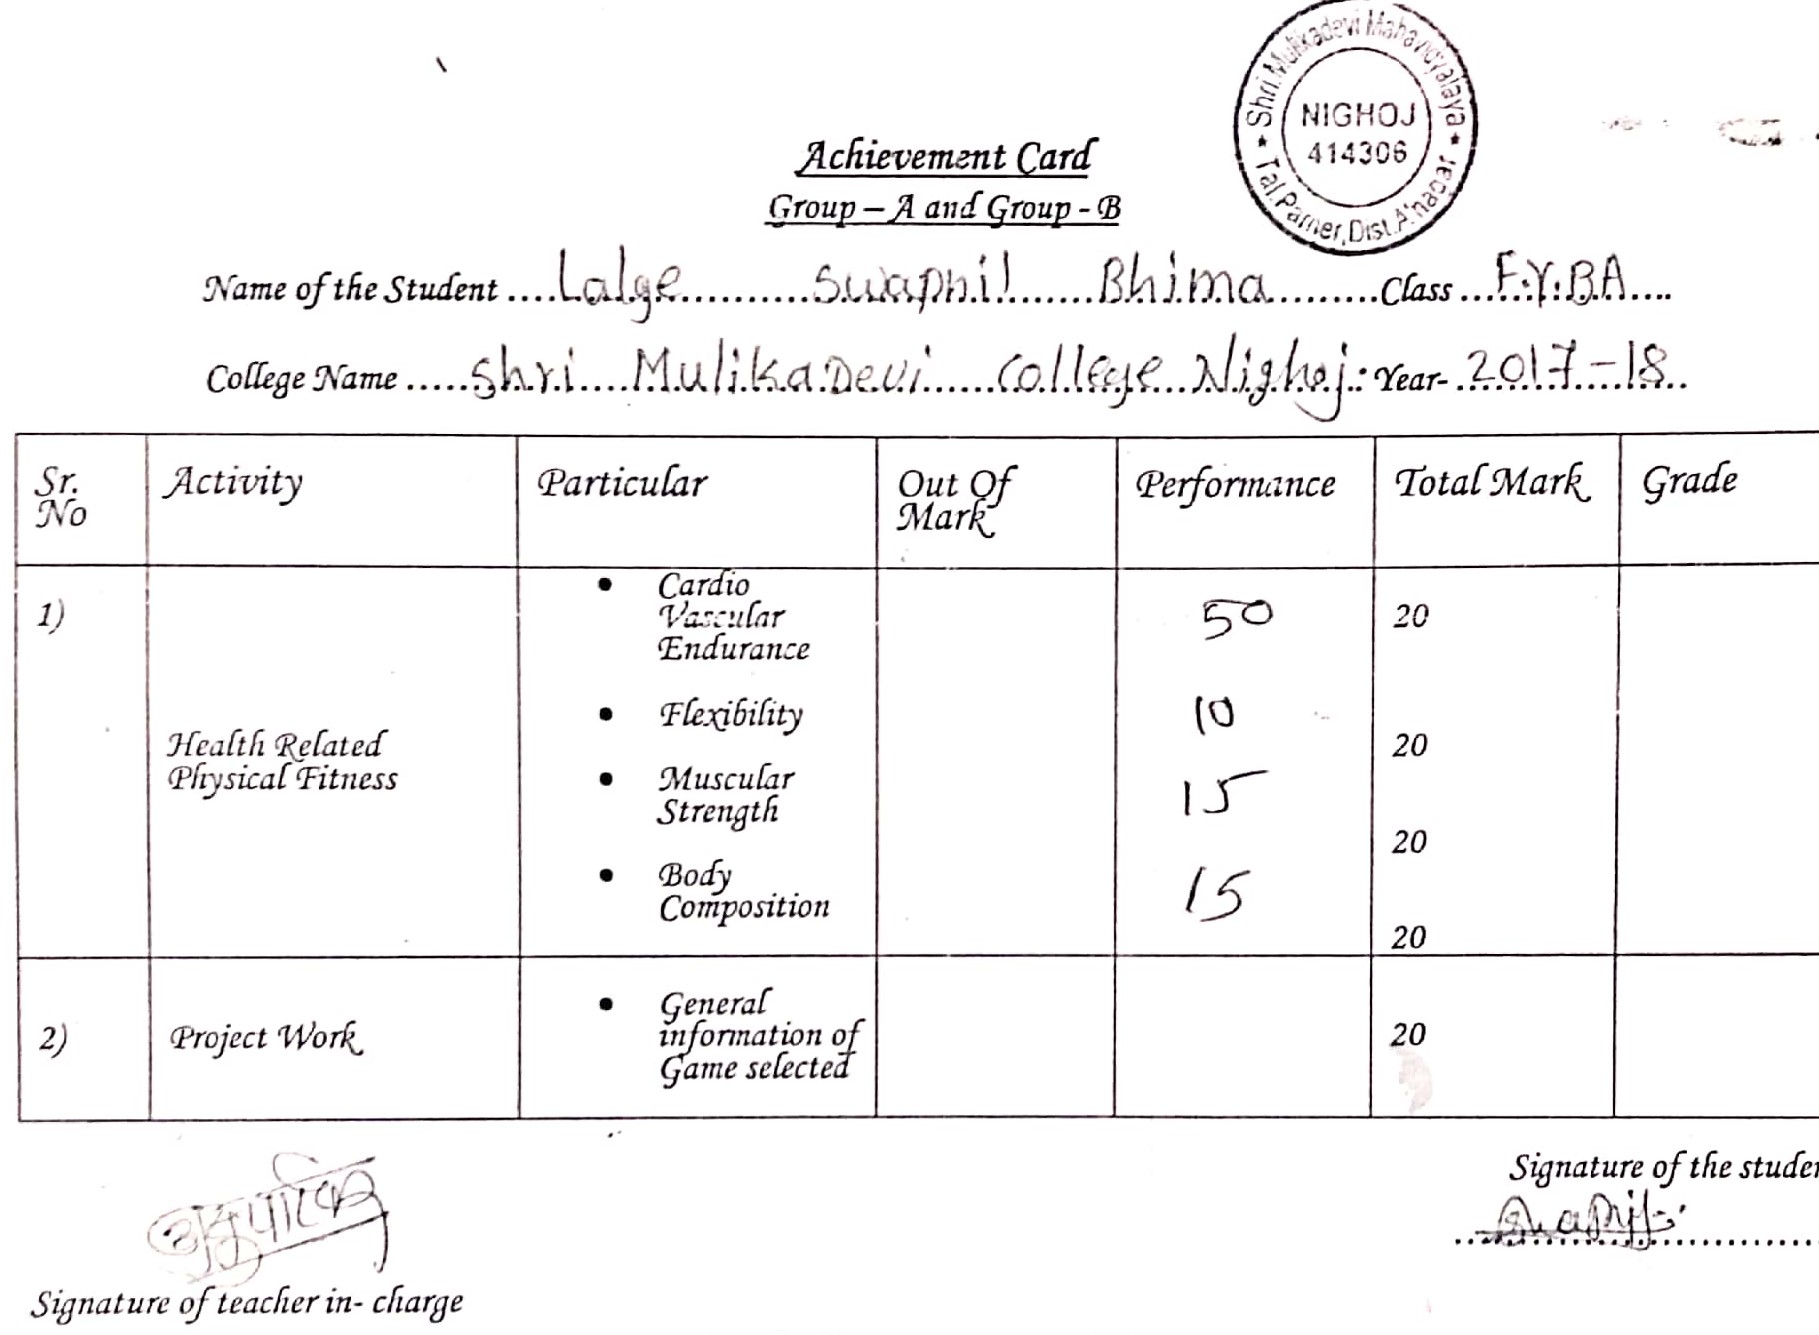 Shri Mulikadevi Mahavidyalaya
NIGHOJ
414306
★ Tal.Parner, Dist.A'nagar ★
Achievement Card
Group – A and Group - B
Name of the Student ....Lalge..........Swapnil.......Bhima.........Class ...F.Y.BA....
College Name .....Shri....MulikaDevi......College...Nighoj.: Year- .2017-18..
Sr. No Activity Particular Out Of Mark Performance Total Mark Grade
1) Health Related Physical Fitness
• Cardio Vascular Endurance 50 20
• Flexibility 10 20
• Muscular Strength 15 20
• Body Composition 15 20
2) Project Work • General information of Game selected 20
Signature of the studen
Signature of teacher in- charge